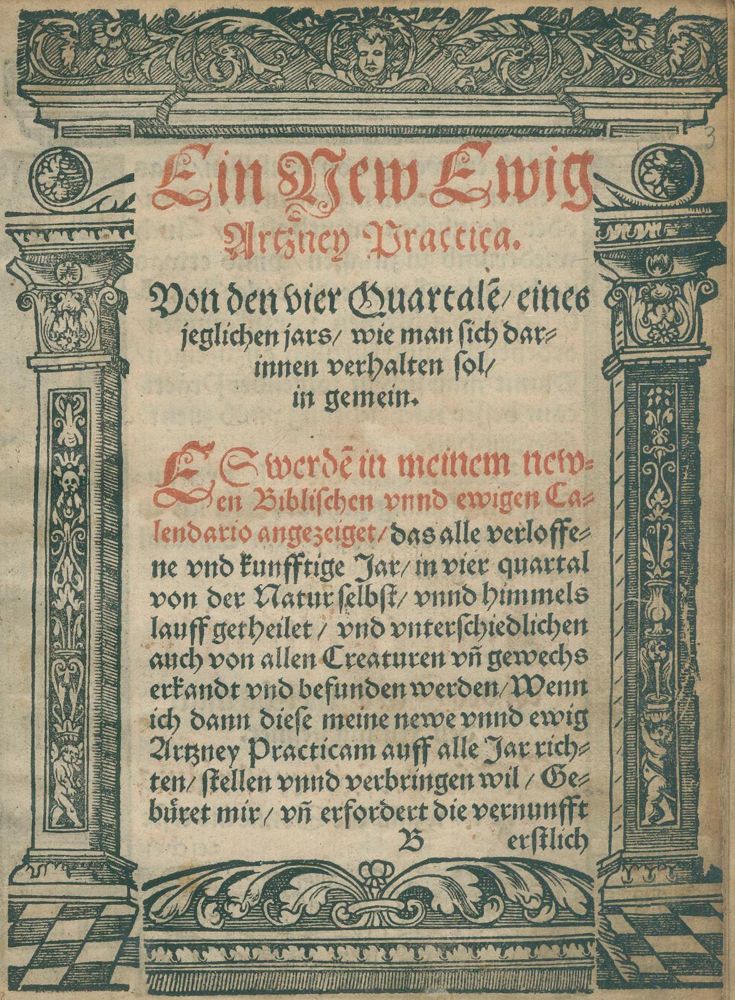 3
Ein New Ewig
Artzney Practica.
Von den vier Quartalẽ/ eines
jeglichen jars/ wie man sich dar⸗
innen verhalten sol/
in gemein.
ES werdẽ in meinem new⸗
en Biblischen vnnd ewigen Ca⸗
lendario angezeiget/ das alle verloffe⸗
ne vnd kunfftige Jar/ in vier quartal
von der Natur selbst/ vnnd himmels
lauff getheilet / vnd vnterschiedlichen
auch von allen Creaturen vñ gewechs
erkandt vnd befunden werden/ Wenn
ich dann diese meine newe vnnd ewig
Artzney Practicam auff alle Jar rich⸗
ten/ stellen vnnd verbringen wil / Ge⸗
büret mir/ vñ erfordert die vernunfft
B erstlich